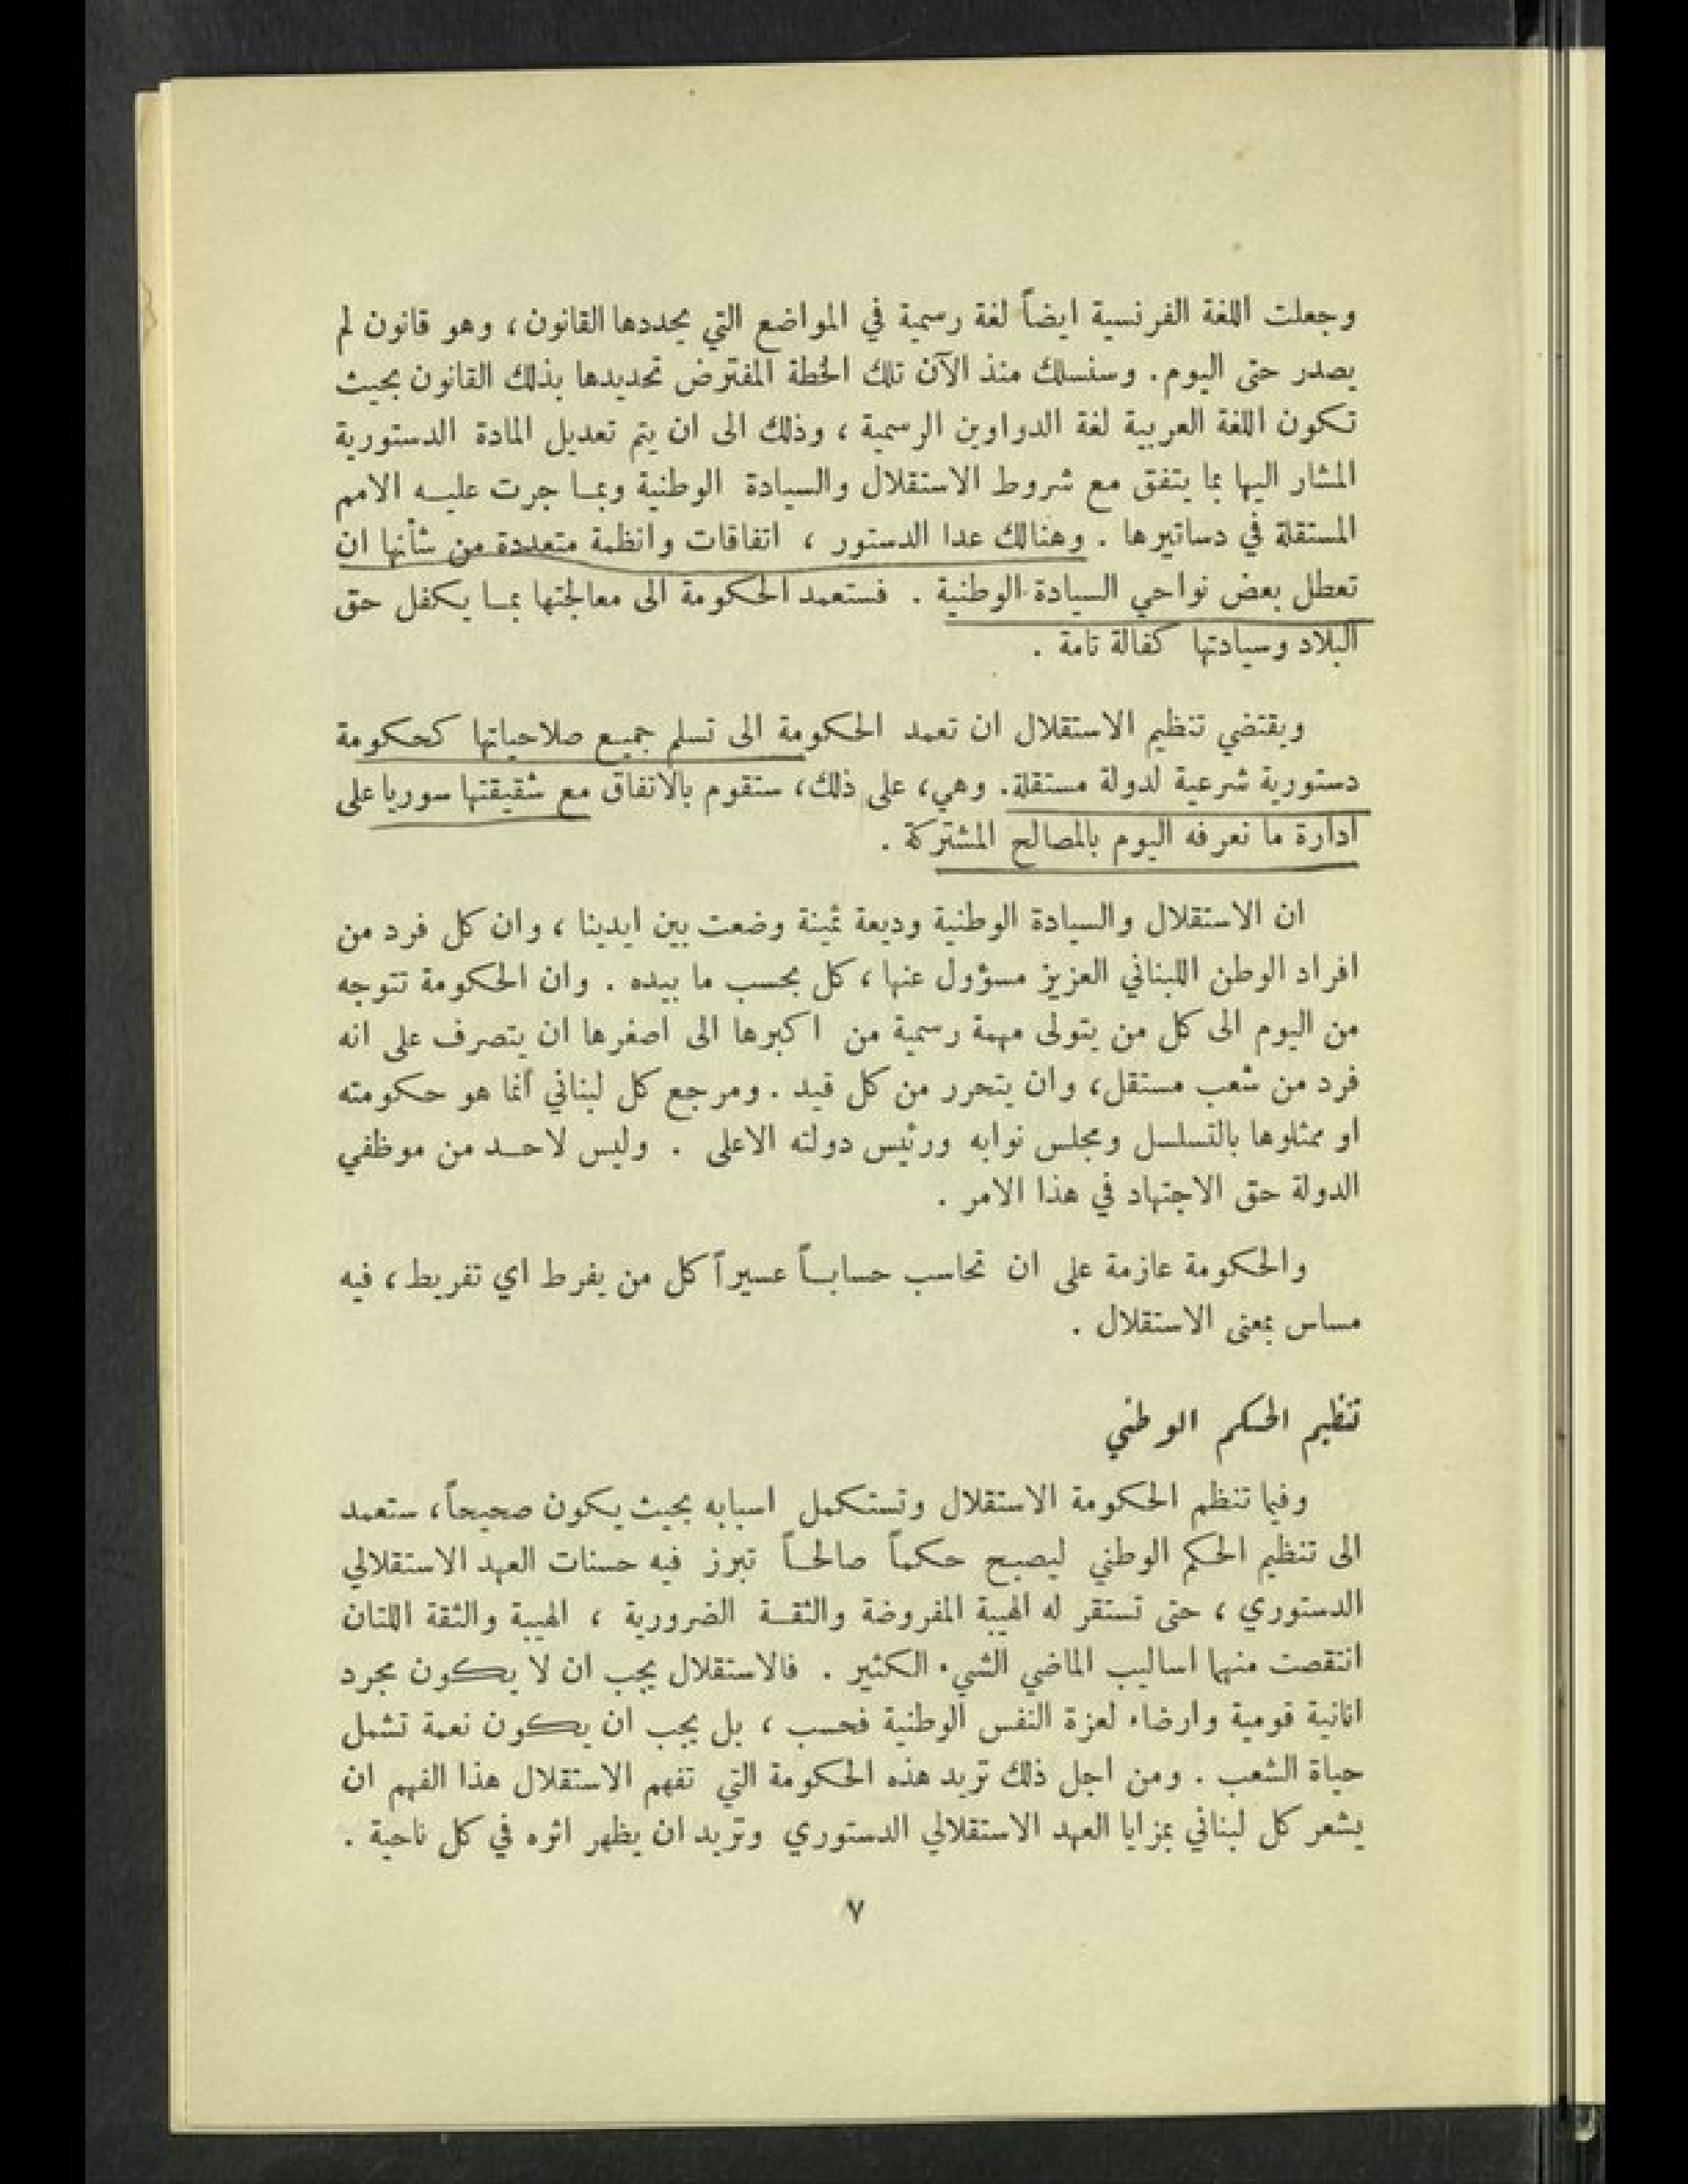 وجعلت اللغة الفرنسية ايضاً لغة رسمية في المواضع التي يحددها القانون، وهو قانون لم
يصدر حتى اليوم. وسنسلك منذ الآن تلك الخطة المفترض تحديدها بذلك القانون بحيث
تكون اللغة العربية لغة الدواوين الرسمية ، وذلك الى ان يتم تعديل المادة الدستورية
المشار اليها بما يتفق مع شروط الاستقلال والسيادة الوطنية وبمـا جرت عليـه الامم
المستقلة في دساتيرها . وهنالك عدا الدستور ، اتفاقات وانظمة متعددة من شأنها ان
تعطل بعض نواحي السيادة الوطنية . فستعمد الحكومة الى معالجتها بمـا يكفل حق
البلاد وسيادتها كفالة تامة .
ويقتضي تنظيم الاستقلال ان تعمد الحكومة الى تسلم جميع صلاحياتها كحكومة
دستورية شرعية لدولة مستقلة. وهي، على ذلك، ستقوم بالاتفاق مع شقيقتها سوريا على
ادارة ما نعرفه اليوم بالمصالح المشتركة .
ان الاستقلال والسيادة الوطنية وديعة ثمينة وضعت بين ايدينا ، وان كل فرد من
افراد الوطن اللبناني العزيز مسؤول عنها ، كل بحسب ما بيده . وان الحكومة تتوجه
من اليوم الى كل من يتولى مهمة رسمية من اكبرها الى اصغرها ان يتصرف على انه
فرد من شعب مستقل، وان يتحرر من كل قيد . ومرجع كل لبناني انما هو حكومته
او ممثلوها بالتسلسل ومجلس نوابه ورئيس دولته الاعلى . وليس لاحـد من موظفي
الدولة حق الاجتهاد في هذا الامر .
والحكومة عازمة على ان تحاسب حسابـاً عسيراً كل من يفرط اي تفريط ، فيه
مساس بمعنى الاستقلال .
تنظيم الحكم الوطني
وفيما تنظم الحكومة الاستقلال وتستكمل اسبابه بحيث يكون صحيحاً، ستعمد
الى تنظيم الحكم الوطني ليصبح حكماً صالحـاً تبرز فيه حسنات العهد الاستقلالي
الدستوري ، حتى تستقر له الهيبة المفروضة والثقـة الضرورية ، الهيبة والثقة اللتان
انتقصت منهما اساليب الماضي الشيء الكثير . فالاستقلال يجب ان لا يكون مجرد
انانية قومية وارضاء لعزة النفس الوطنية فحسب ، بل يجب ان يكون نعمة تشمل
حياة الشعب . ومن اجل ذلك تريد هذه الحكومة التي تفهم الاستقلال هذا الفهم ان
يشعر كل لبناني بمزايا العهد الاستقلالي الدستوري وتريد ان يظهر اثره في كل ناحية .
٧